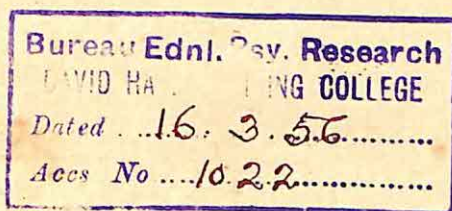 Bureau Ednl. Psy. Research
DAVID HA ING COLLEGE
Dated ...16. 3. 56..........
Accs No ....10.22...............